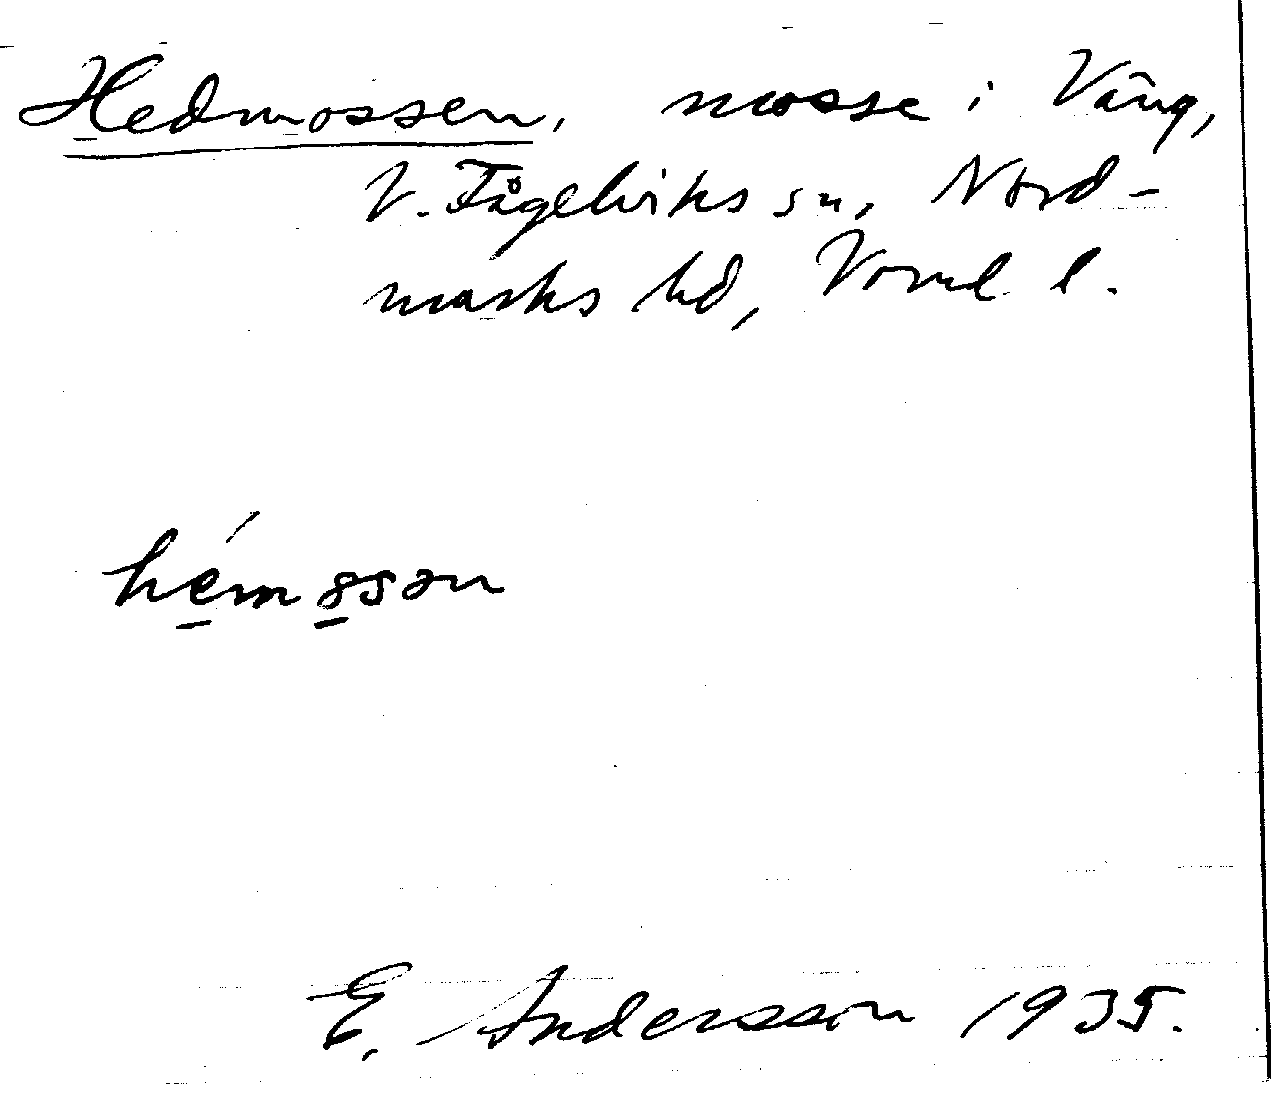 Hedmossen, mosse i Vång,
V. Fågelviks sn, Nord-
marks hd, Vrml l.
hémȣsən
E. Andersson 1935.